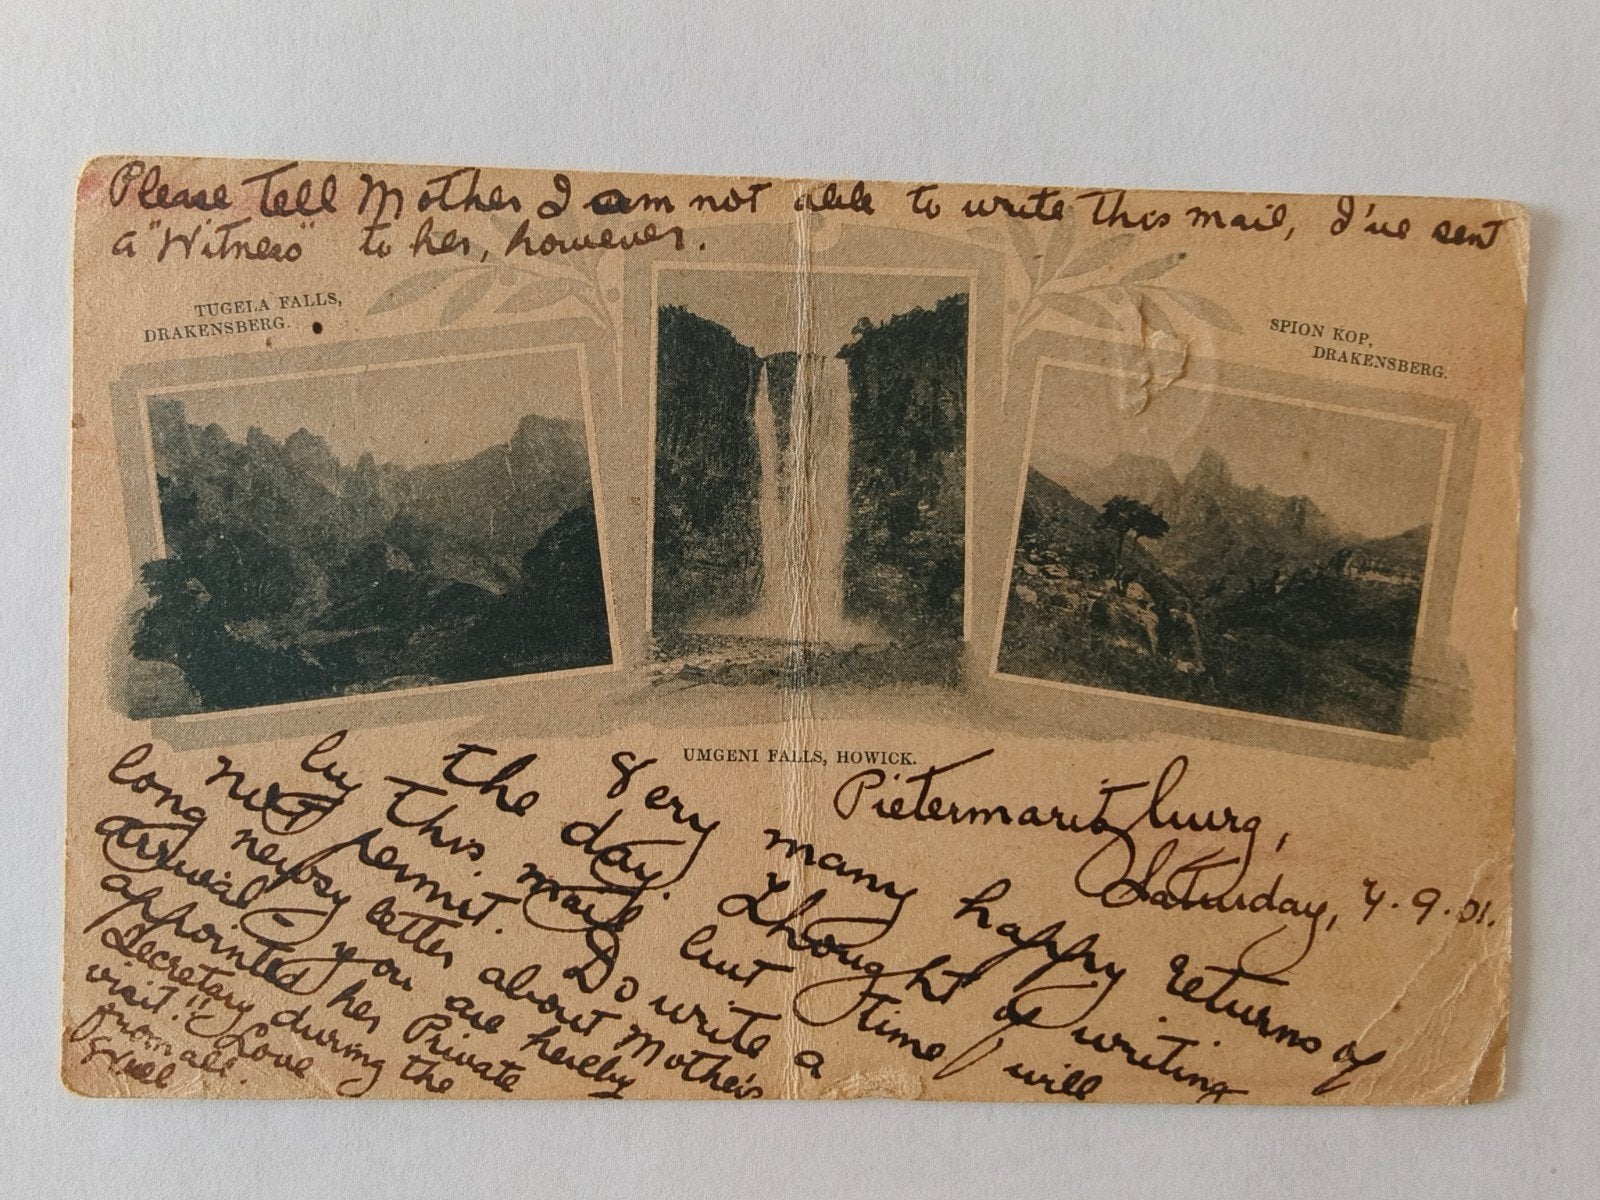 Please tell Mother I am not able to write this mail, I've sent
a "Witness" to her, however.
TUGELA FALLS,
DRAKENSBERG.
SPION KOP,
DRAKENSBERG.
UMGENI FALLS, HOWICK.
Pietermaritzburg,
Saturday, 7.9.01.
Very many happy returns of
the day. Thought of writing
by this mail but time will
not permit. Do write a
long newsy letter about Mother's
arrival - you are hereby
appointed her Private
Secretary during the
visit!! Love
from all.